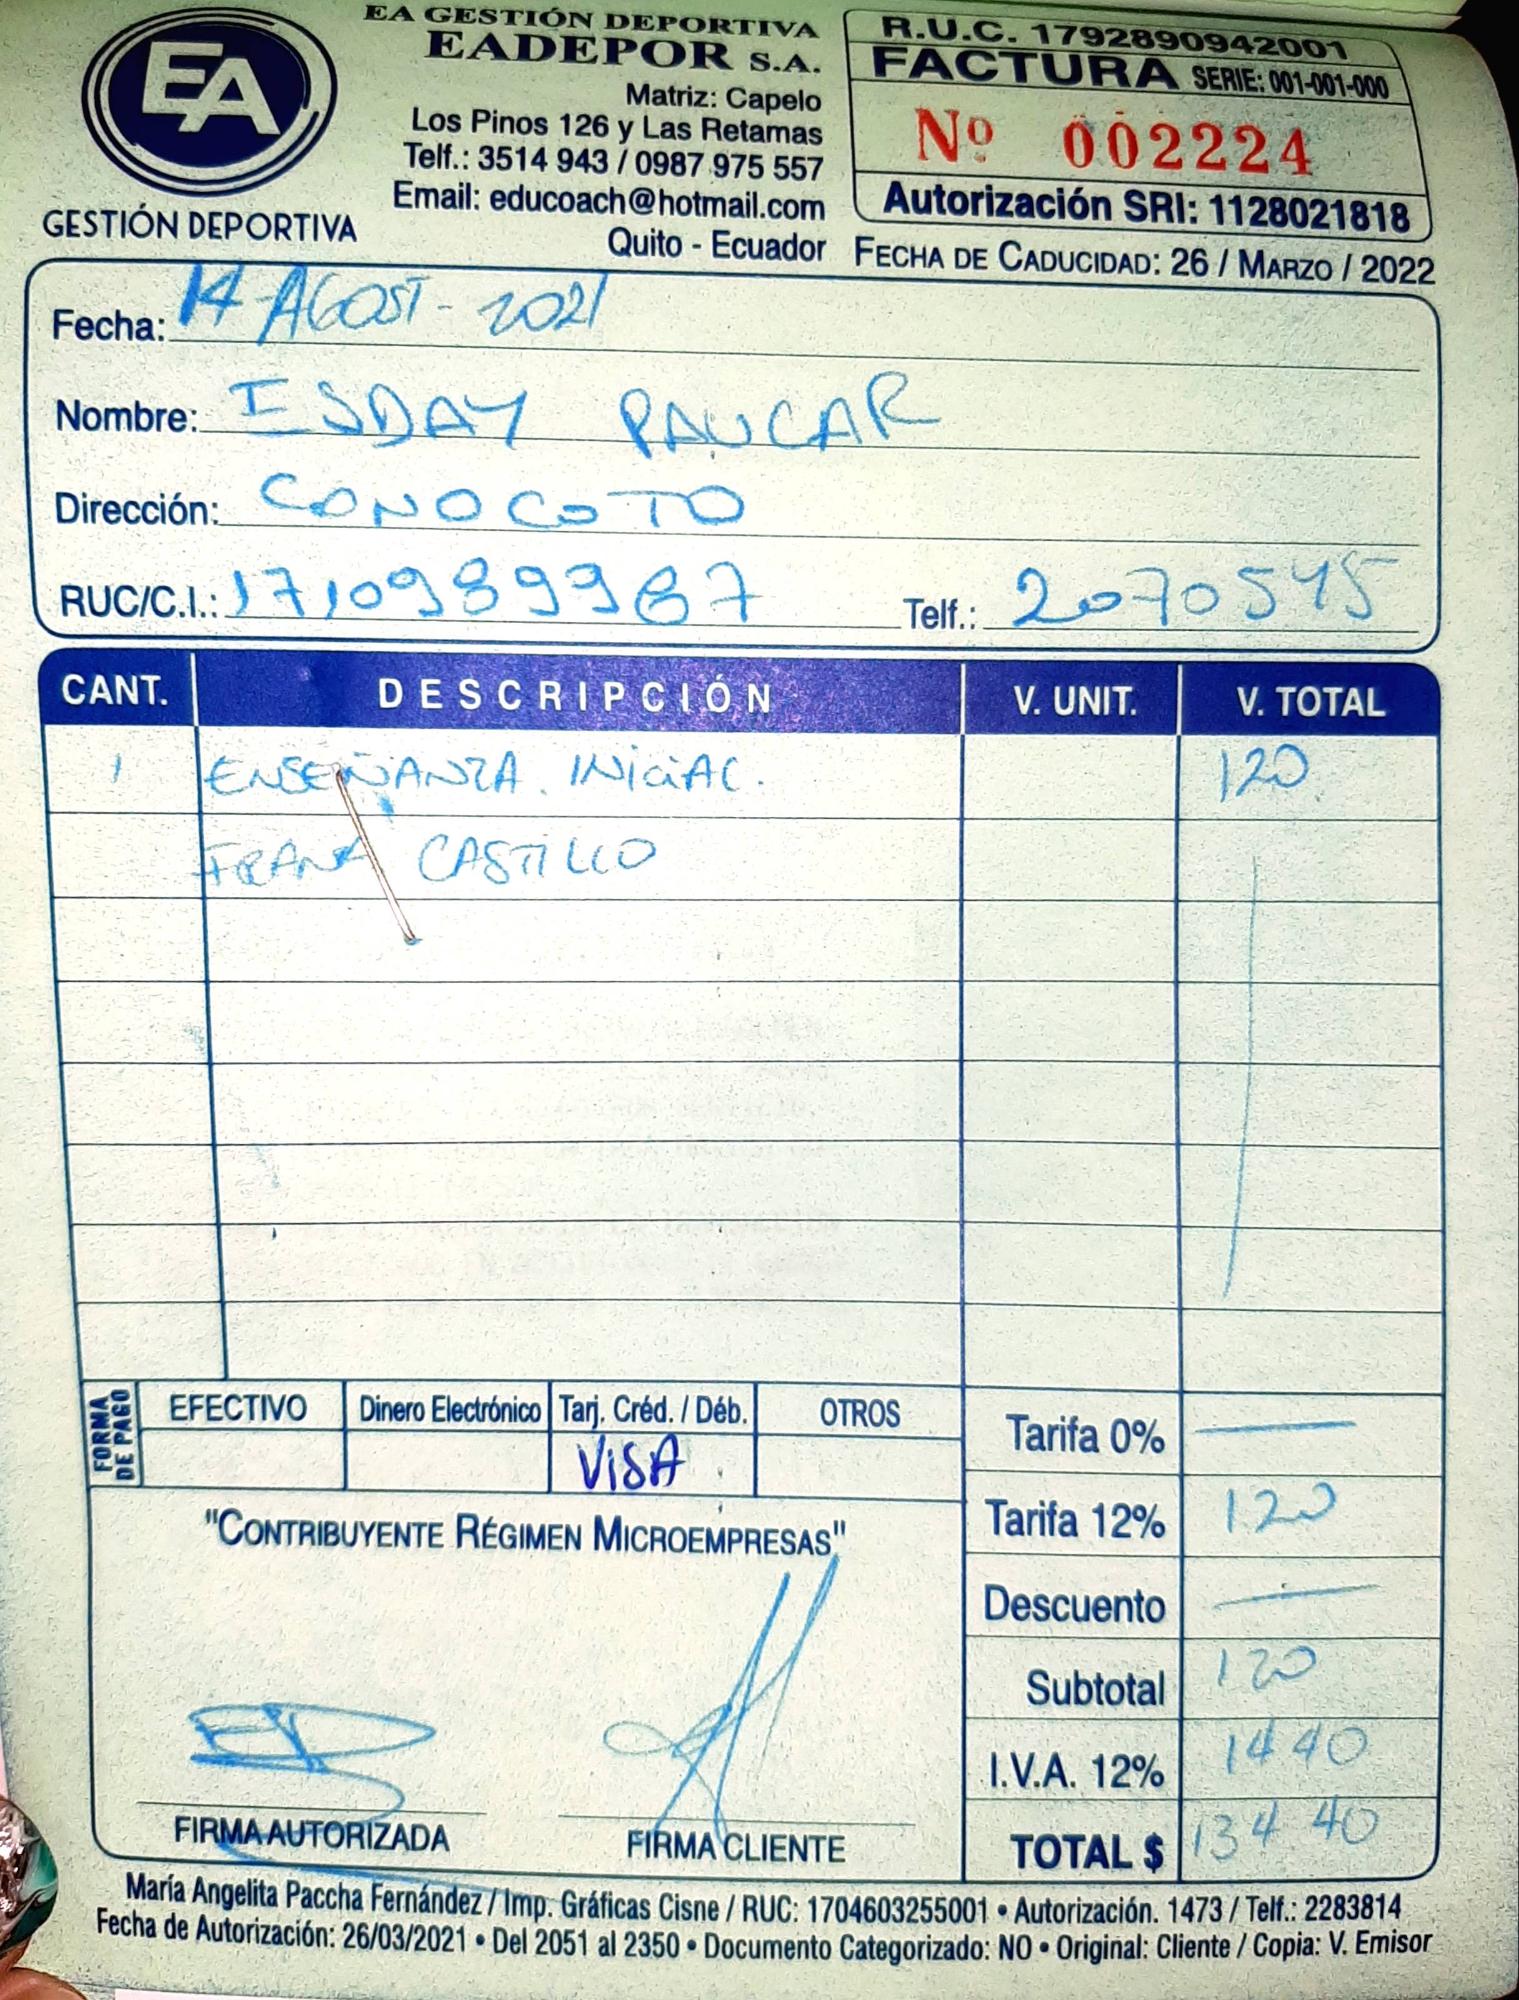 EA
GESTIÓN DEPORTIVA
EA GESTIÓN DEPORTIVA
EADEPOR S.A.
Matriz: Capelo
Los Pinos 126 y Las Retamas
Telf.: 3514 943 / 0987 975 557
Email: educoach@hotmail.com
Quito - Ecuador
R.U.C. 1792890942001
FACTURA SERIE: 001-001-000
Nº 002224
Autorización SRI: 1128021818
FECHA DE CADUCIDAD: 26 / MARZO / 2022
Fecha: 14-AGOST-2021
Nombre: ISDAY PAUCAR
Dirección: CONOCOTO
RUC/C.I.: 1710989987 Telf.: 2070545
CANT. DESCRIPCIÓN V. UNIT. V. TOTAL
1 ENSEÑANZA. INICIAL. 120
CASTILLO
FORMA DE PAGO
EFECTIVO Dinero Electrónico Tarj. Créd. / Déb. OTROS
VISA
Tarifa 0% —
Tarifa 12% 120
Descuento —
Subtotal 120
I.V.A. 12% 14 40
TOTAL $ 134 40
"CONTRIBUYENTE RÉGIMEN MICROEMPRESAS"
FIRMA AUTORIZADA FIRMA CLIENTE
María Angelita Paccha Fernández / Imp. Gráficas Cisne / RUC: 1704603255001 • Autorización. 1473 / Telf.: 2283814
Fecha de Autorización: 26/03/2021 • Del 2051 al 2350 • Documento Categorizado: NO • Original: Cliente / Copia: V. Emisor